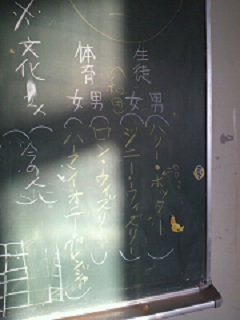 生徒
男(ハリー・ポッター)
女(ジニー・ウィズリー)
体育
男(ロン・ウィズリー)
女(ハーマイオニー・グレンジャー)
※文化
(今の会